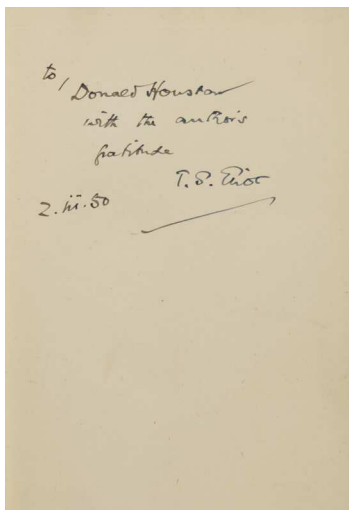 to,
Donald Houston
with the author's
gratitude
T. S. Eliot
2.iii.50